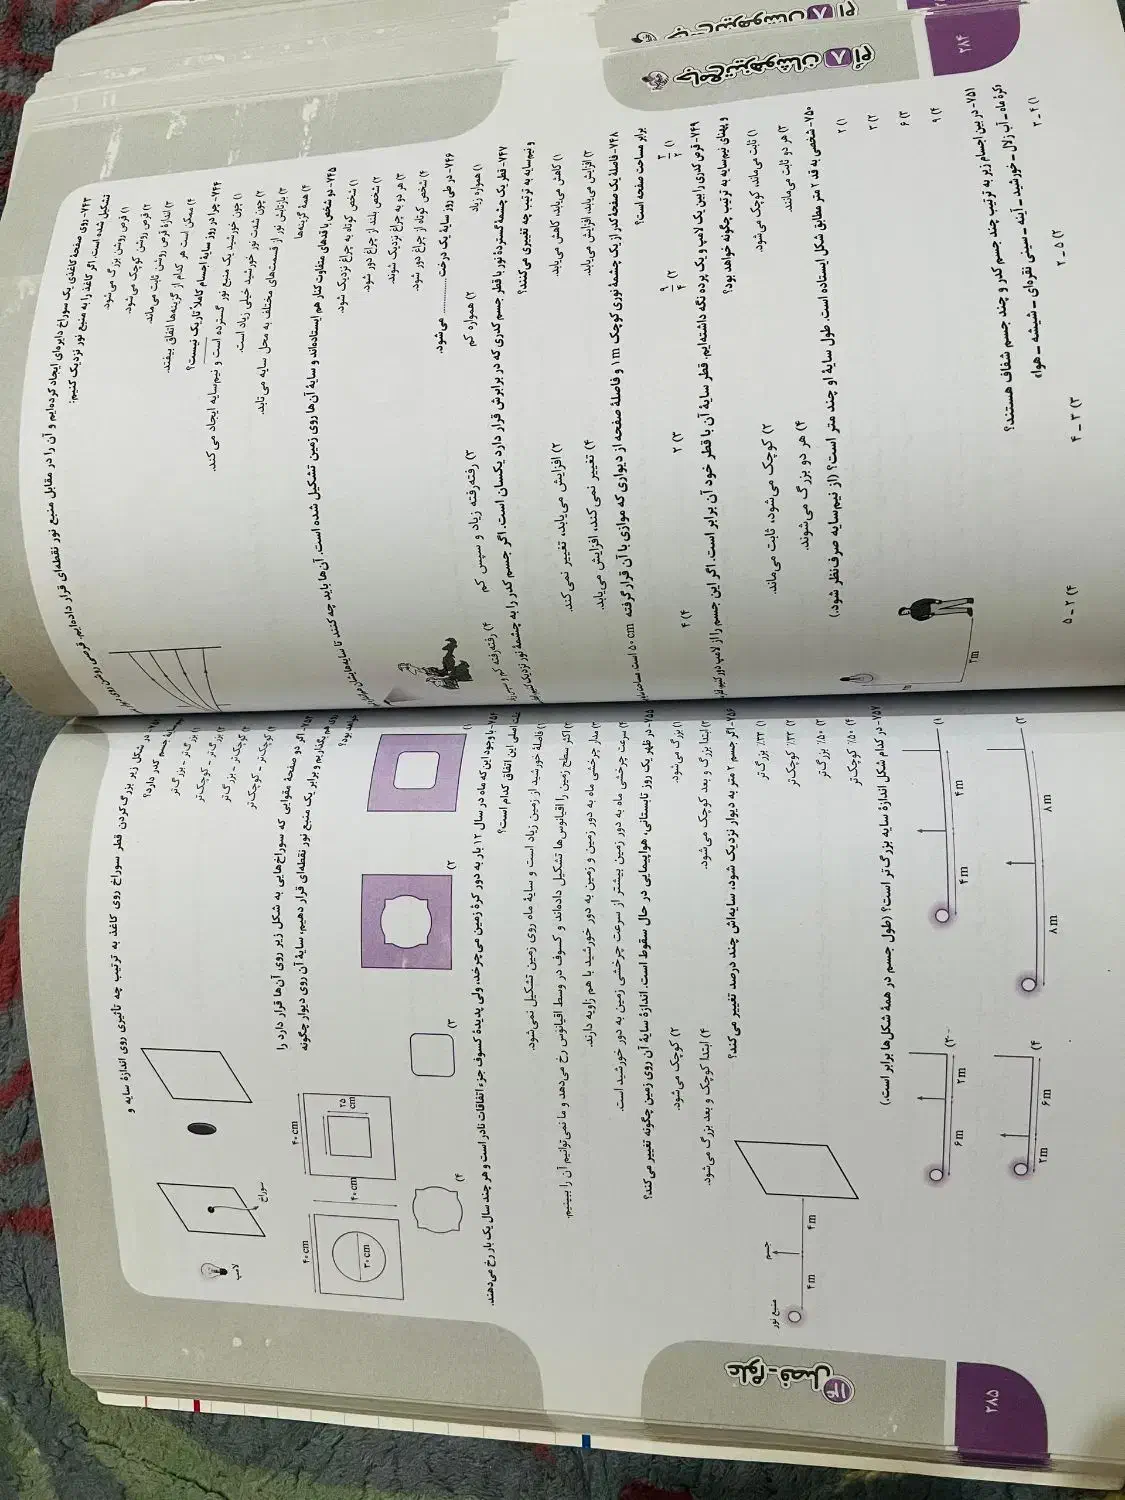 جامع تیزهوشان ۸ ام
۲۸۴
۷۴۳- روی صفحهٔ کاغذی یک سوراخ دایره‌ای ایجاد کرده‌ایم و آن را در مقابل منبع نور نقطه‌ای قرار داده‌ایم. قرصی روشن روی
تشکیل شده است. اگر کاغذ را به منبع نور نزدیک کنیم:
۱) قرص روشن بزرگ می‌شود.
۲) قرص روشن کوچک می‌شود.
۳) اندازهٔ قرص روشن ثابت می‌ماند.
۴) ممکن است هر کدام از گزینه‌ها اتفاق بیفتد.
۷۴۴- چرا در روز سایهٔ اجسام کاملاً تاریک نیست؟
۱) چون خورشید یک منبع نور گسترده است و نیم‌سایه ایجاد می‌کند.
۲) چون شدت نور خورشید خیلی زیاد است.
۳) بازتابش نور از قسمت‌های مختلف به محل سایه می‌تابد.
۴) همهٔ گزینه‌ها
۷۴۵- دو شخص با قدهای متفاوت کنار هم ایستاده‌اند و سایهٔ آن‌ها روی زمین تشکیل شده است. آن‌ها باید چه کنند تا سایه‌هایشان هم‌اندازه
۱) شخص کوتاه به چراغ نزدیک شود.
۲) شخص بلند از چراغ دور شود.
۳) هر دو به چراغ نزدیک شوند.
۴) شخص کوتاه از چراغ دور شود.
۷۴۶- در طی روز سایهٔ یک درخت .............. می‌شود.
۱) همواره زیاد
۲) همواره کم
۳) رفته‌رفته زیاد و سپس کم
۴) رفته‌رفته کم و سپس زیاد
۷۴۷- قطر یک چشمهٔ گستردهٔ نور با قطر جسم کدری که در برابرش قرار دارد یکسان است. اگر جسم کدر را به چشمهٔ نور نزدیک کنیم،
و نیم‌سایه به ترتیب چه تغییری می‌کنند؟
۱) کاهش می‌یابد، کاهش می‌یابد.
۲) افزایش می‌یابد، تغییر نمی‌کند.
۳) افزایش می‌یابد، افزایش می‌یابد.
۴) تغییر نمی‌کند، افزایش می‌یابد.
۷۴۸- فاصلهٔ یک صفحهٔ کدر از یک چشمهٔ نوری کوچک ۱ m و فاصلهٔ صفحه از دیواری که موازی با آن قرار گرفته ۵۰ cm است. مساحت سایه
برابر مساحت صفحه است؟
۱) ۳/۲
۲) ۹/۴
۳) ۲
۴) ۴
۷۴۹- قرص کدری را بین یک لامپ و یک پرده نگه داشته‌ایم. قطر سایهٔ آن با قطر خود آن برابر است. اگر این جسم را از لامپ دور کنیم، قطر
و پهنای نیم‌سایه به ترتیب چگونه خواهد بود؟
۱) ثابت می‌ماند، کوچک می‌شود.
۲) کوچک می‌شود، ثابت می‌ماند.
۳) هر دو ثابت می‌مانند.
۴) هر دو بزرگ می‌شوند.
۷۵۰- شخصی به قد ۲ متر مطابق شکل ایستاده است. طول سایهٔ او چند متر است؟ (از نیم‌سایه صرف‌نظر شود.)
۱) ۲
۲) ۳
۳) ۶
۴) ۹
۳m
۷۵۱- در بین اجسام زیر به ترتیب چند جسم کدر و چند جسم شفاف هستند؟
«کرهٔ ماه ـ آب زلال ـ خورشید ـ آینه ـ سینی نقره‌ای ـ شیشه ـ هوا»
۱) ۴ ـ ۳
۲) ۵ ـ ۲
۳) ۳ ـ ۴
۴) ۲ ـ ۵
در شکل زیر بزرگ کردن قطر سوراخ روی کاغذ به ترتیب چه تأثیری روی اندازهٔ سایه و
جسم کدر دارد؟
۱) بزرگ‌تر ـ بزرگ‌تر
۲) بزرگ‌تر ـ کوچک‌تر
۳) کوچک‌تر ـ بزرگ‌تر
۴) کوچک‌تر ـ کوچک‌تر
لامپ
سوراخ
اگر دو صفحهٔ مقوایی که سوراخ‌هایی به شکل زیر روی آن‌ها قرار دارد را
روی هم بگذاریم و برابر یک منبع نور نقطه‌ای قرار دهیم، سایهٔ آن روی دیوار چگونه
خواهد بود؟
۴۰ cm
۳۰ cm
۴۰ cm
۴۰ cm
۲۵ cm
۱)
۲)
۳)
۴)
با وجود این که ماه در سال ۱۲ بار به دور کرهٔ زمین می‌چرخد، ولی پدیدهٔ کسوف جزء اتفاقات نادر است و هر چند سال یک بار رخ می‌دهند.
علت اصلی این اتفاق کدام است؟
۱) فاصلهٔ خورشید از زمین زیاد است و سایهٔ ماه روی زمین تشکیل نمی‌شود.
۲) اکثر سطح زمین را اقیانوس‌ها تشکیل داده‌اند و کسوف در وسط اقیانوس رخ می‌دهد و ما نمی‌توانیم آن را ببینیم.
۳) مدار چرخشی ماه به دور زمین و زمین به دور خورشید با هم زاویه دارند.
۴) سرعت چرخشی ماه به دور زمین بیشتر از سرعت چرخشی زمین به دور خورشید است.
۷۵۵- در ظهر یک روز تابستانی، هواپیمایی در حال سقوط است. اندازهٔ سایهٔ آن روی زمین چگونه تغییر می‌کند؟
۱) بزرگ می‌شود.
۲) کوچک می‌شود.
۳) ابتدا بزرگ و بعد کوچک می‌شود.
۴) ابتدا کوچک و بعد بزرگ می‌شود.
۷۵۶- اگر جسم ۲ متر به دیوار نزدیک شود، سایه‌اش چند درصد تغییر می‌کند؟
۱) ۳۳٪ بزرگ‌تر
۲) ۳۳٪ کوچک‌تر
۳) ۵۰٪ بزرگ‌تر
۴) ۵۰٪ کوچک‌تر
منبع نور
جسم
۴ m
۴ m
۷۵۷- در کدام شکل اندازهٔ سایه بزرگ‌تر است؟ (طول جسم در همهٔ شکل‌ها برابر است.)
۱)
۴ m
۴ m
۲)
۶ m
۲ m
۳)
۸ m
۸ m
۴)
۲ m
۶ m
علوم ـ فصل ۱۴
۲۸۵